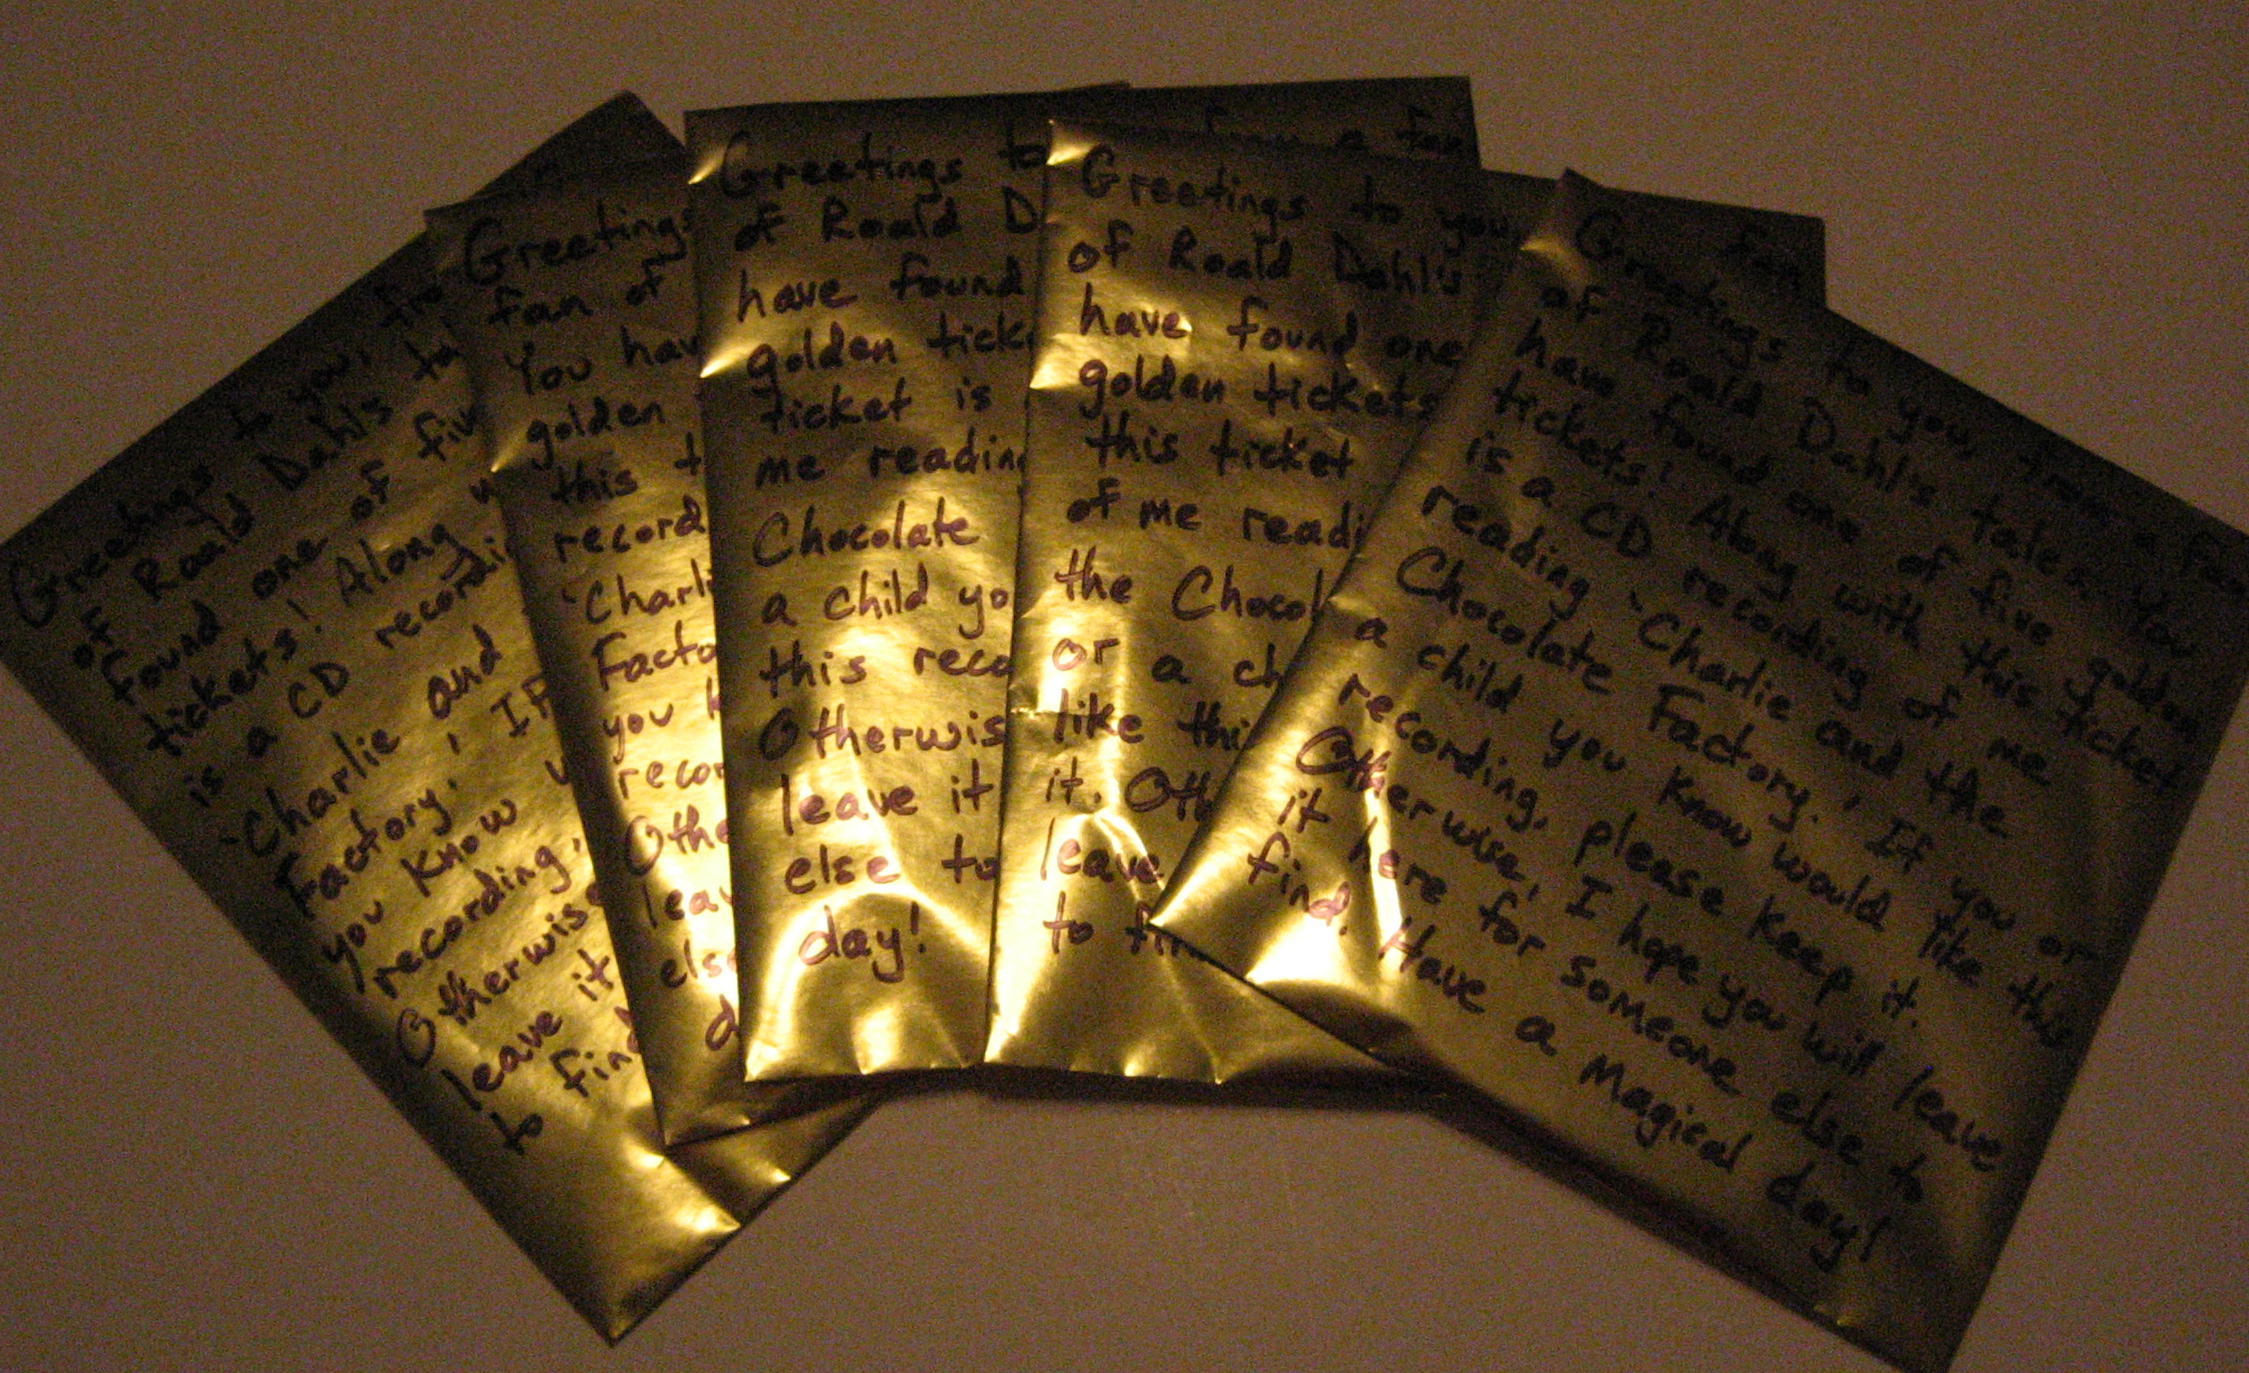 Greetings to you, fro
of Roald Dahl's ta
found one of fiv
tickets! Along w
is a CD recordi
'Charlie and
Factory.' If
you know
recording,
Otherwise
leave it
to find
Greetings
fan of
You hav
golden
this t
record
'Charli
Facto
you
recor
Othe
leav
else
d
Greetings to
of Roald D
have found
golden ticke
ticket is
me reading
Chocolate
a child yo
this reco
Otherwis
leave it
else to
day!
from a fan
Greetings to you
of Roald Dahl's
have found one
golden tickets
this ticket
of me readi
the Chocol
or a ch
like thi
it. Oth
leave
to fin
fan
Greetings to you, from a fan
of Roald Dahl's tale. You
have found one of five golden
tickets! Along with this ticket
is a CD recording of me
reading 'Charlie and the
Chocolate Factory.' If you or
a child you know would like this
recording, please keep it.
Otherwise, I hope you will leave
it here for someone else to
find. Have a magical day!